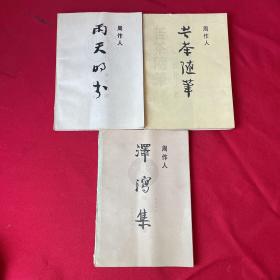 周作人
雨天的书
周作人
苦茶随笔
周作人
泽泻集